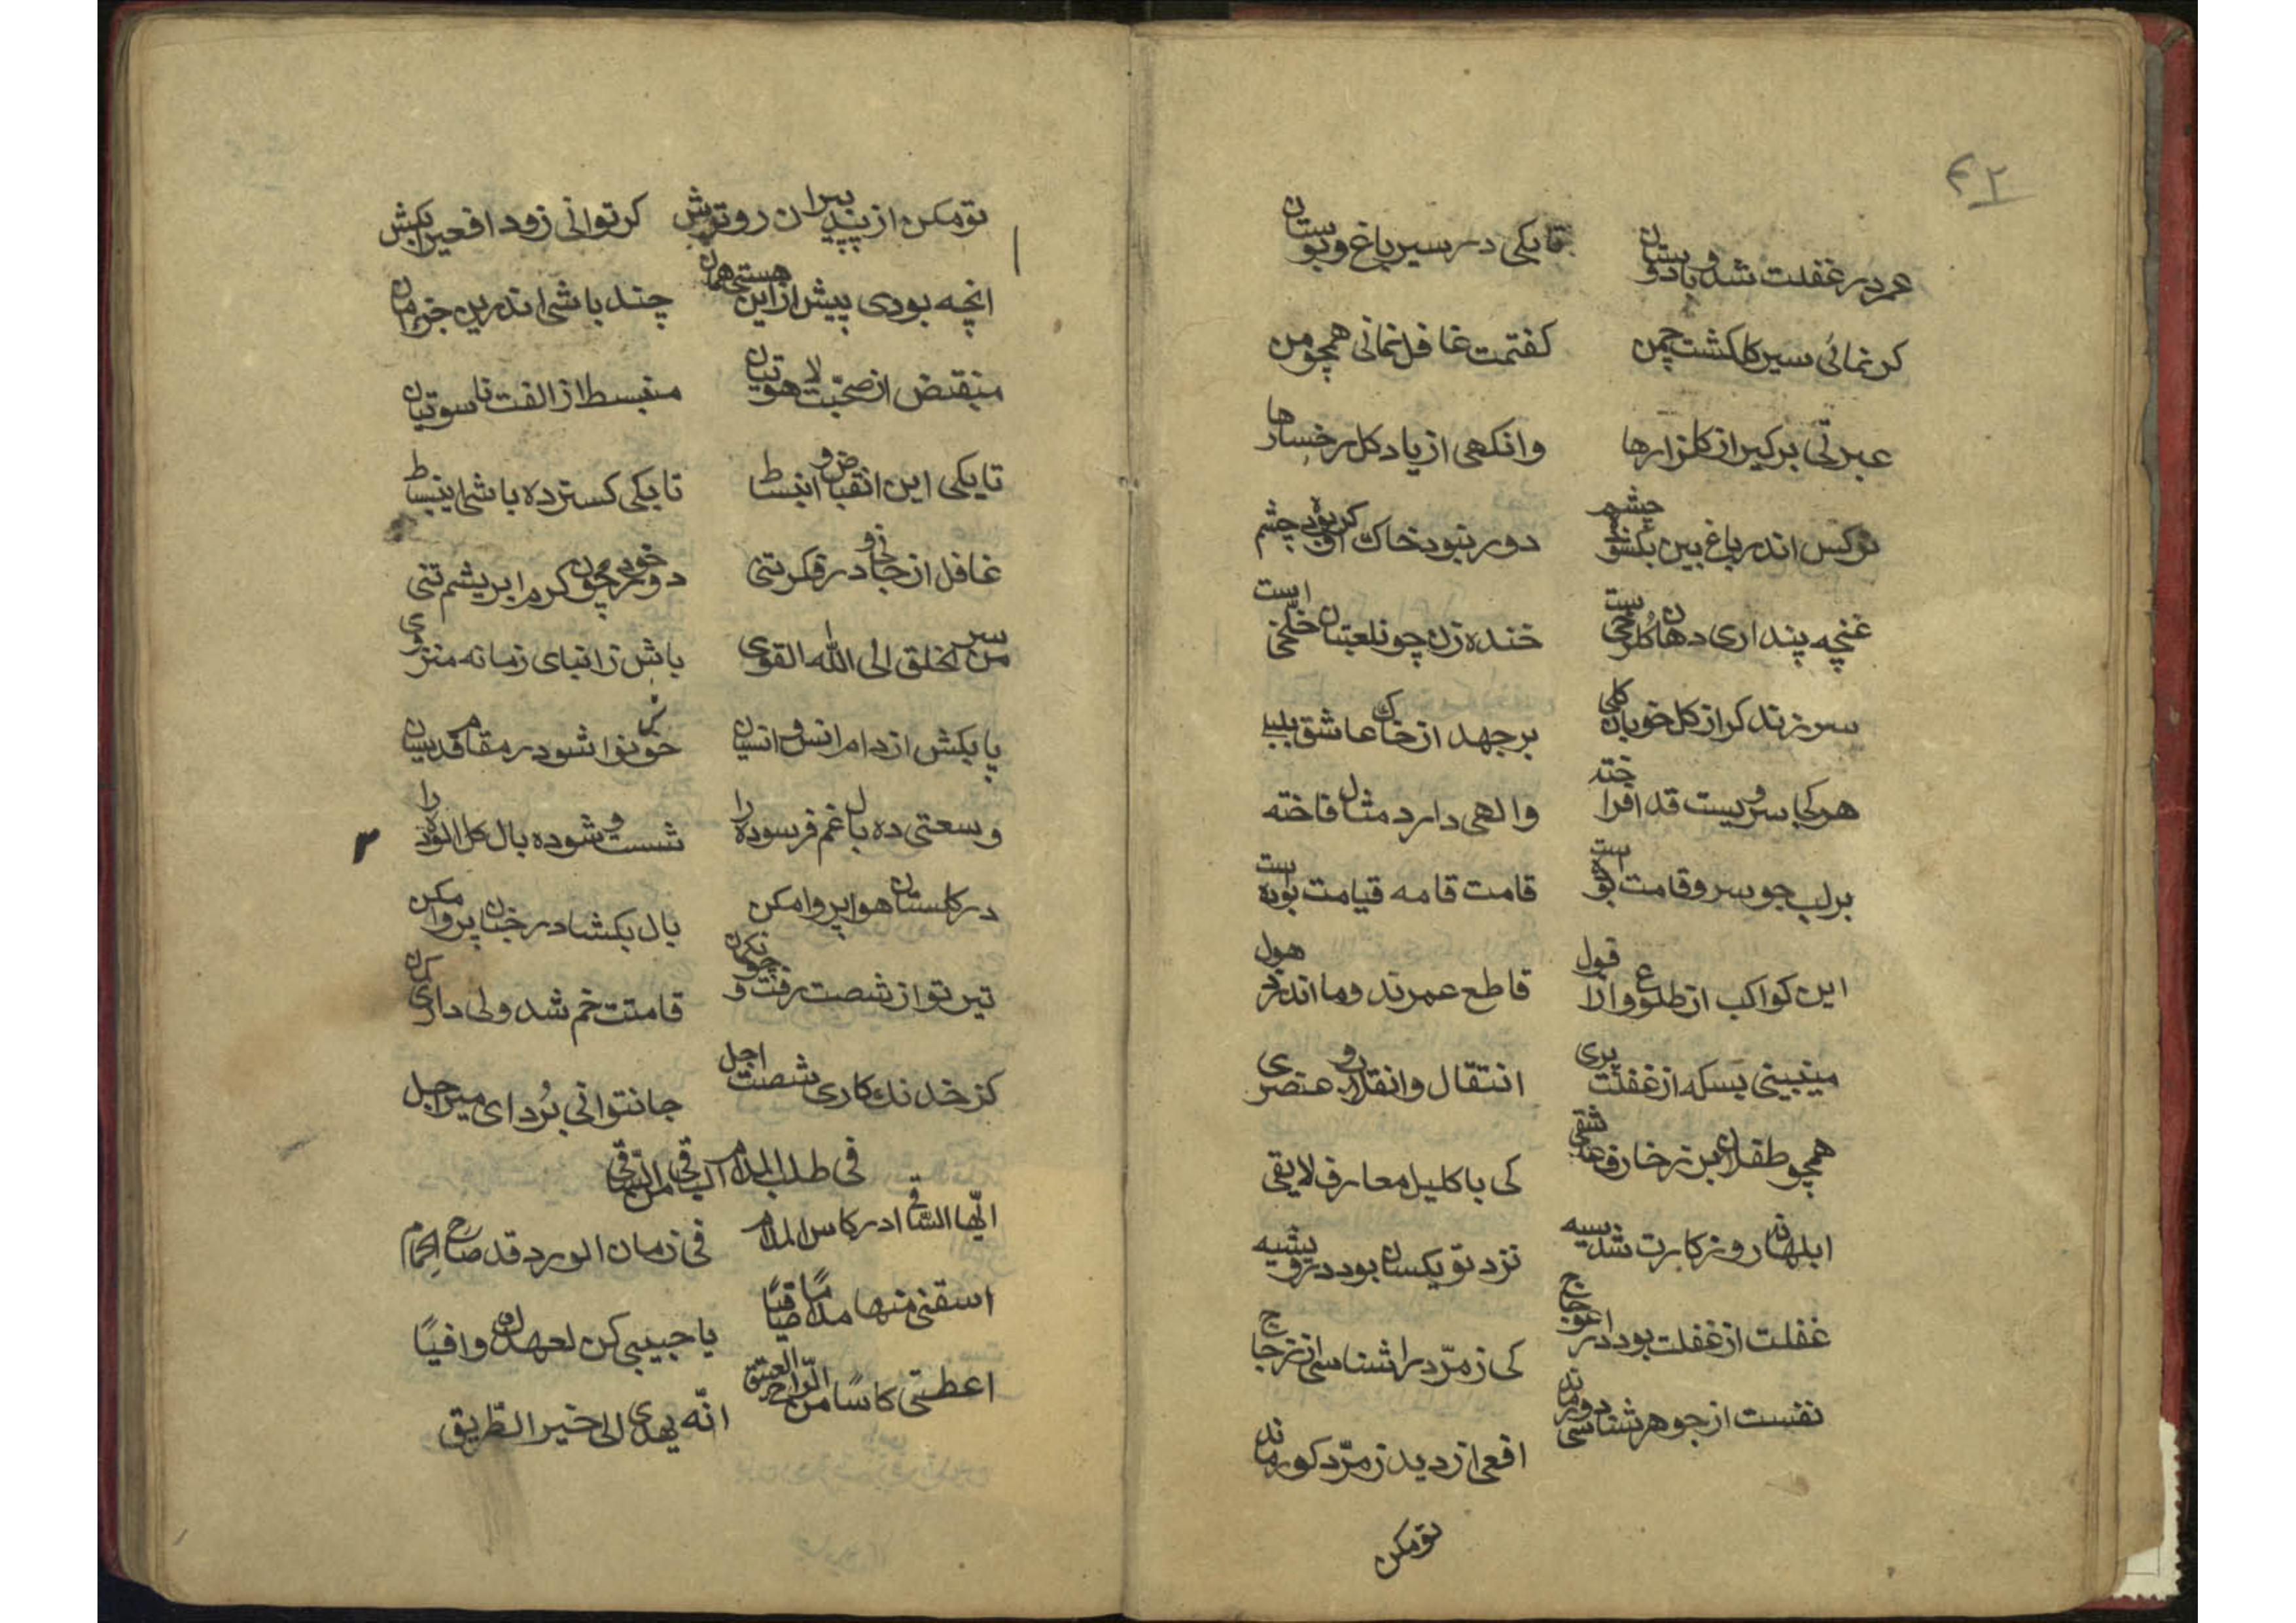 ۴۲
عمر در غفلت شد و با دوستان تا بکی در سیر باغ و بوستان
کر نمائی سیر کلکشت چمن کفتمت غافل نمانی همچو من
عبرتی برکیر از کلزارها وانکهی از یاد کل رخسارها
نرکس اندر باغ بین بکشوده چشم دور نبود خاک او کر بوده چشم
غنچه پنداری دهان کلرخی ست خنده زن چو نلعبتان خلّخی است
سر زند کر از کل خوبان کلی بر جهد از خاک عاشق بلبلی
هر کجا سرویست قد افراخته والهی دارد مثال فاخته
بر لب جو سرو قامت بوده ست قامت قامه قیامت بوده ست
این کواکب از طلوع و از افول قاطع عمرند و ما اندر هول
می نبینی بسکه از غفلت بری انتقال و انقلاب عنصری
همچو طفلان بر زخارف عاشقی کی باکلیل معارف لایقی
ابلهانه روزکارت شد سیه نزد تو یکسان بود در و شبه
غفلت از غفلت بود در اعوجاج کی زمرّد را شناسی از زجاج
نفست از جوهر شناسی دور ماند افعی از دید زمرّد کور ماند
تو مکن
تو مکن از پند پیران رو ترش کر توانی زود افعی را بکش
انچه بودی پیش از این هستی همان چند باشی اندرین
منقبض از صحبت لاهوتیان منبسط از الفت ناسوتیان
تا بکی این انقباض و انبساط تا بکی کسترده باشی این بساط
غافل از جان و در فکر تنی دور خود چون کرم ابریشم تنی
سر من الخلق الی الله القوی باش ز ابنای زمانه منزوی
پا بکش از دام انس و انسیان خوش نوا شو در مقام قدسیان
وسعتی ده بال غم فرسوده را شست و شو ده بال کل الوده را
۳
در کلستان هوا پروا مکن بال بکشا در جنان پر وا مکن
تیر تو از شصت رفت و چو نکمان قامتت خم شد ولی داری کمان
کز خدنک کاری شصت اجل جان توانی بُرد ای میر اجل
فی طلب المدام الباقی من الساقی
ایّها السّاقی ادر کاس المدام فی زمان الورد قد صاح الحمام
اسقنی منها مدامًا صافیًا یا حبیبی کن لعهدی وافیًا
اعطنی کاسًا من الرّاح العتیق انّه یهدی الی خیر الطّریق